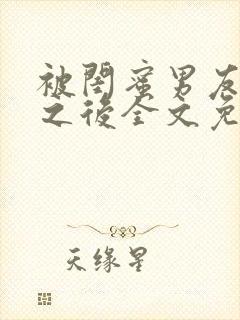 被閨蜜男友
之後全文免
天缘星